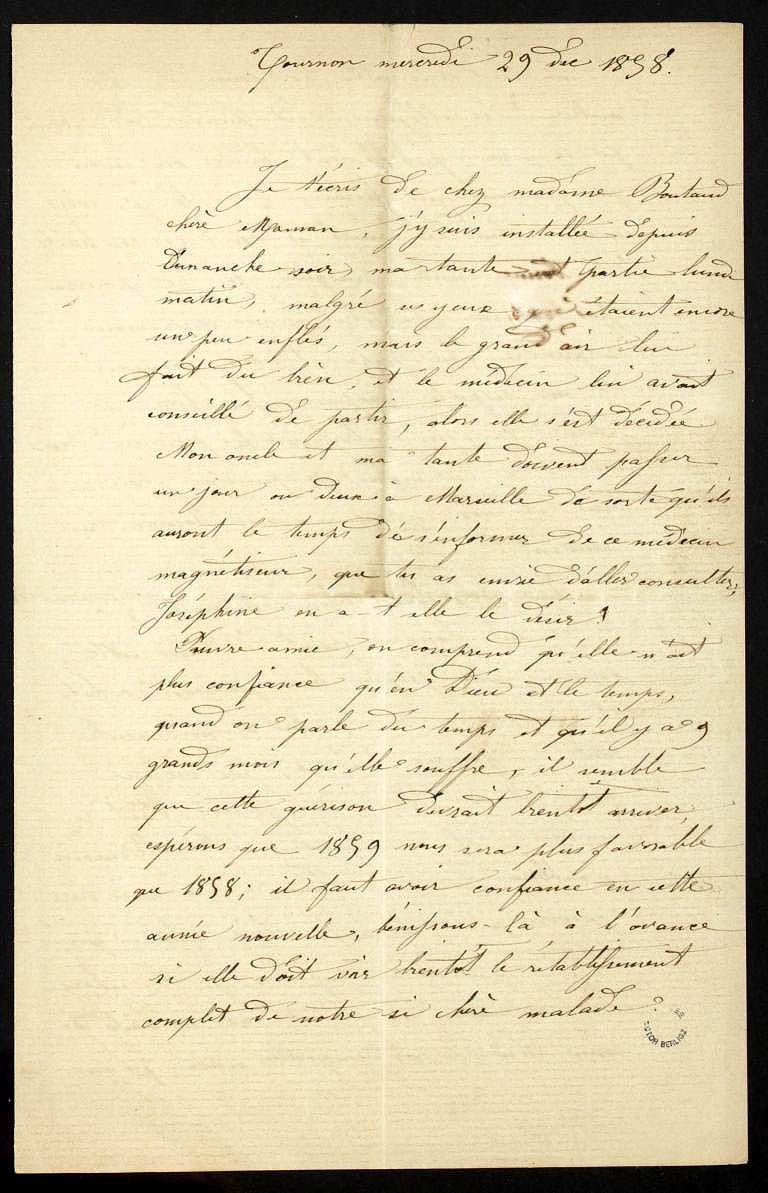 Tournon mercredi 29 Dec 1858.
Je t'écris de chez madame Boutaud
chère Maman, j'y suis installée depuis
Dimanche soir, ma tante est partie lundi
matin, malgré ses yeux qui étaient encore
un peu enflés, mais le grand air lui
fait du bien, et le médecin lui avait
conseillé de partir, alors elle s'est décidée
Mon oncle et ma tante doivent passer
un jour ou deux à Marseille de sorte qu'ils
auront le temps de s'informer de ce médecin
magnétiseur, que tu as envie d'aller consulter;
Joséphine en a-t elle le désir?
Pauvre amie, on comprend qu'elle n'ait
plus confiance qu'en Dieu et le temps,
quand on parle du temps et qu'il y a 9
grands mois qu'elle souffre, il semble
que cette guérison devrait bientôt arriver,
espérons que 1859 nous sera plus favorable
que 1858; il faut avoir confiance en cette
année nouvelle, bénissons-là à l'avance
si elle doit voir bientôt le rétablissement
complet de notre si chère malade?
BERLIOZ